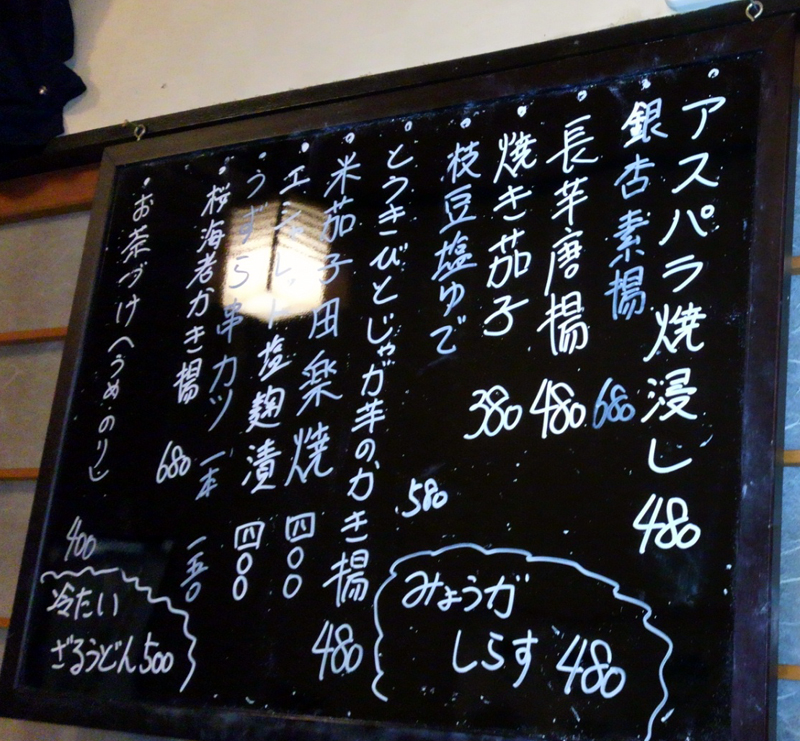 アスパラ焼浸し 480
銀杏素揚 680
長芋唐揚 480
焼き茄子 380
枝豆塩ゆで 580
とうきびとじゃが芋のかき揚 480
米茄子田楽焼 四〇〇
エシャレット塩麹漬 四〇〇
うずら串カツ 一本 一五〇
桜海老かき揚 680
お茶づけ〈うめ・のり〉 400
みょうが
しらす 480
冷たい
ざるうどん 500